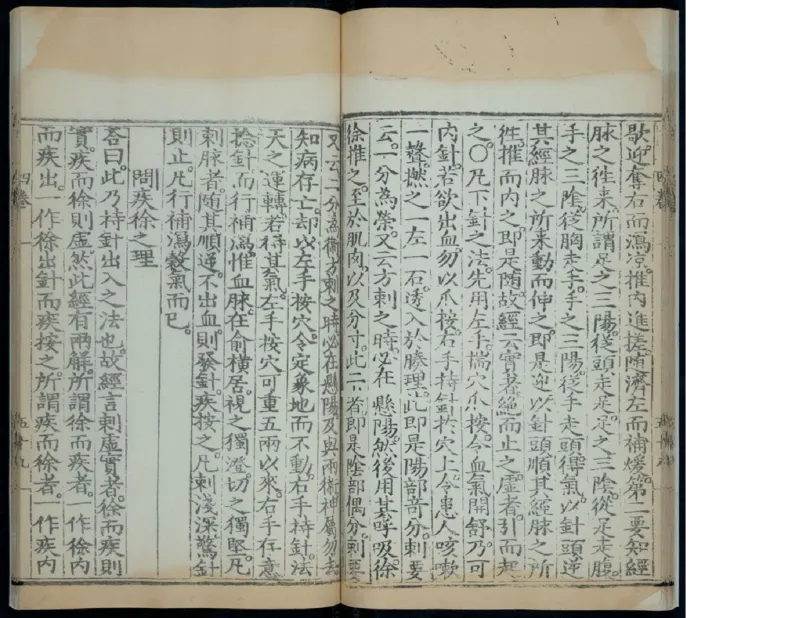 歇。迎奪右而瀉凉。推內進搓。隨濟左而補煖。第二要知經
脉之徃來。所謂足之三陽。從頭走足。足之三陰。從足走腹。
手之三陰。從胸走手。手之三陽。從手走頭。得氣。以針頭逆
其經脉之所來。動而伸之。即是迎。以針頭順其經脉之所
徃。推而內之。即是隨。故經云。實者。絕而止之。虛者。引而起
之。〇凡下針之法。先用左手揣穴爪按。令血氣開舒。乃可
內針。若欲出血。勿以爪按。右手持針於穴上。令患人咳嗽
一聲。撚之。一左一右。透入於腠理。此即是陽部奇分。刺要
云。一分為榮。又云。方刺之時。必在懸陽。然後用其呼吸。徐
徐推之。至於肌肉。以及分寸。此二者。即是陰部偶分。刺要
又云。二分為衛。方刺之時。必在懸陽。及與兩衛。神屬勿去。
知病存亡。却以左手按穴。令定。象地而不動。右手持針。法
天之運轉。若得其氣。左手按穴。可重五兩以來。右手存意
捻針。而行補瀉。惟血脉。在俞橫居。視之獨澄。切之獨堅。凡
刺脉者。隨其順逆。不出血。則發針。疾按之。凡刺淺深。驚針
則止。凡行補瀉。穀氣而已。
問疾徐之理
荅曰。此乃持針出入之法也。故經言刺虛實者。徐而疾則
實。疾而徐則虛。然此經有兩解。所謂徐而疾者。一作徐內
而疾出。一作徐出針而疾按之。所謂疾而徐者。一作疾內